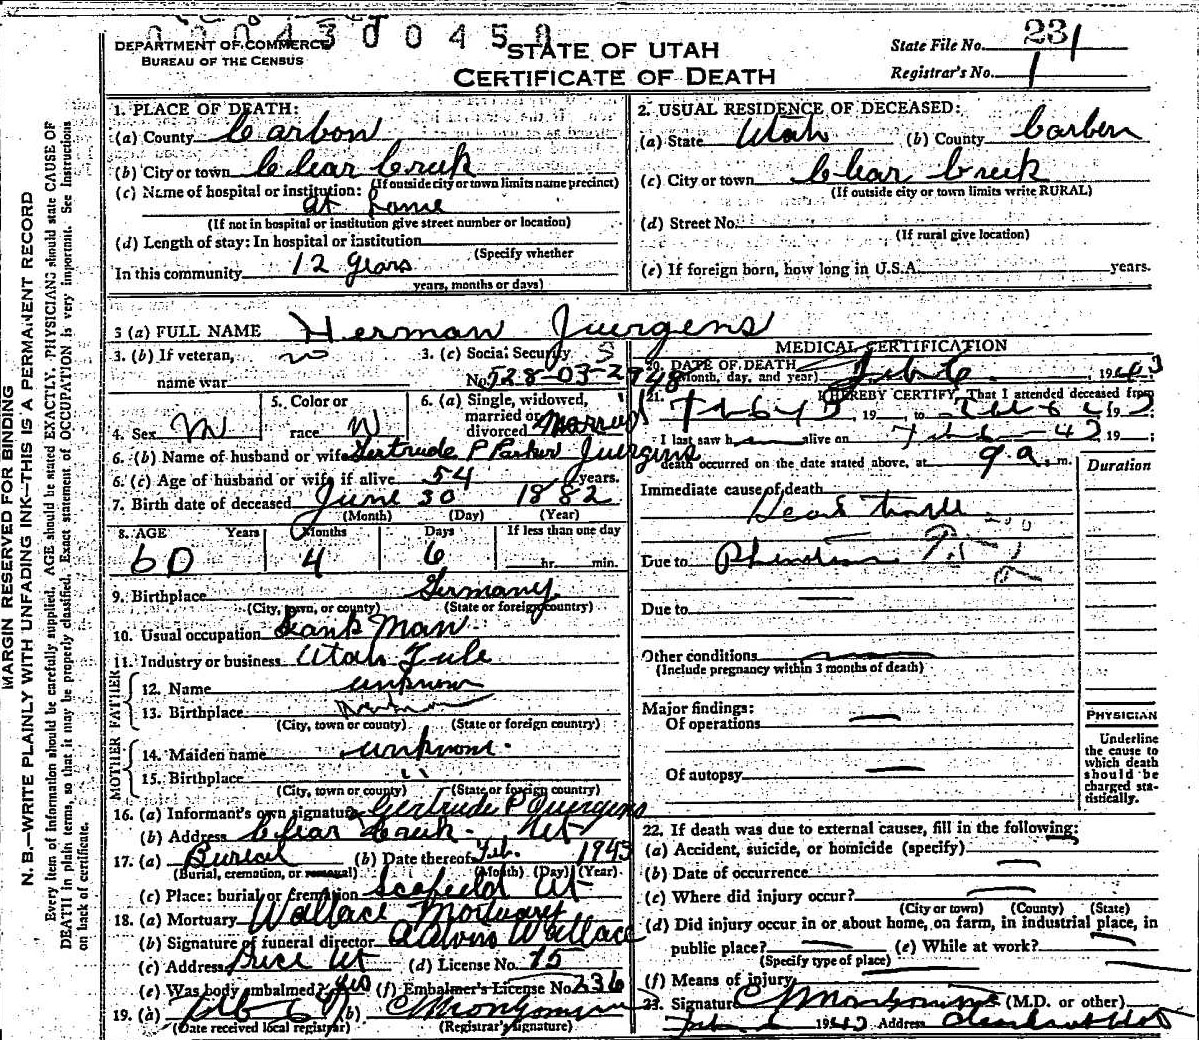 0004300450
DEPARTMENT OF COMMERCE
BUREAU OF THE CENSUS
STATE OF UTAH
CERTIFICATE OF DEATH
State File No. 231
Registrar's No. 1
MARGIN RESERVED FOR BINDING
N. B.—WRITE PLAINLY WITH UNFADING INK—THIS IS A PERMANENT RECORD
Every item of information should be carefully supplied. AGE should be stated EXACTLY. PHYSICIANS should state CAUSE OF
DEATH in plain terms, so that it may be properly classified. Exact statement of OCCUPATION is very important. See Instructions
on back of certificate.
1. PLACE OF DEATH:
(a) County Carbon
(b) City or town Clear Creek
(If outside city or town limits name precinct)
(c) Name of hospital or institution:
at home
(If not in hospital or institution give street number or location)
(d) Length of stay: In hospital or institution
(Specify whether
In this community 12 years
years, months or days)
2. USUAL RESIDENCE OF DECEASED:
(a) State Utah (b) County Carbon
(c) City or town Clear Creek
(If outside city or town limits write RURAL)
(d) Street No.
(If rural give location)
(e) If foreign born, how long in U.S.A. years.
3 (a) FULL NAME Herman Juergens
3. (b) If veteran, no
name war
3. (c) Social Security
No. 528-03-2948
4. Sex M
5. Color or
race W
6. (a) Single, widowed,
married or
divorced Married
6. (b) Name of husband or wife Gertrude P Parker Juergens
6. (c) Age of husband or wife if alive 54 years.
7. Birth date of deceased June 30 1882
(Month) (Day) (Year)
8. AGE Years Months Days If less than one day
60 4 6 hr. min.
9. Birthplace Germany
(City, town, or county) (State or foreign country)
10. Usual occupation Man
11. Industry or business Utah Fuel
FATHER
12. Name unknown
13. Birthplace
(City, town or county) (State or foreign country)
MOTHER
14. Maiden name unknown
15. Birthplace "
(City, town or county) (State or foreign country)
16. (a) Informant's own signature Gertrude P Juergens
(b) Address Clear Creek Ut
17. (a) Burial (b) Date thereof Feb. 1943
(Burial, cremation, or removal) (Month) (Day) (Year)
(c) Place: burial or cremation Scofield Ut
18. (a) Mortuary Wallace Mortuary
(b) Signature of funeral director Wallace
(c) Address Price Ut (d) License No. 75
(e) Was body embalmed? yes (f) Embalmer's License No. 236
19. (a) Feb 6 (b) Montgomery
(Date received local registrar) (Registrar's signature)
MEDICAL CERTIFICATION
20. DATE OF DEATH
(Month, day, and year) Feb 6, 1943
21. I HEREBY CERTIFY, That I attended deceased from
19 to 19
I last saw h alive on 19
death occurred on the date stated above, at 9 a. m.
Duration
Immediate cause of death
Heart trouble
Due to
Due to
Other conditions
(Include pregnancy within 3 months of death)
Major findings:
Of operations
Of autopsy
PHYSICIAN
Underline
the cause to
which death
should be
charged sta-
tistically.
22. If death was due to external causes, fill in the following:
(a) Accident, suicide, or homicide (specify)
(b) Date of occurrence
(c) Where did injury occur?
(City or town) (County) (State)
(d) Did injury occur in or about home, on farm, in industrial place, in
public place? (e) While at work?
(Specify type of place)
(f) Means of injury
23. Signature Montgomery (M.D. or other)
Feb 6 1943 Address